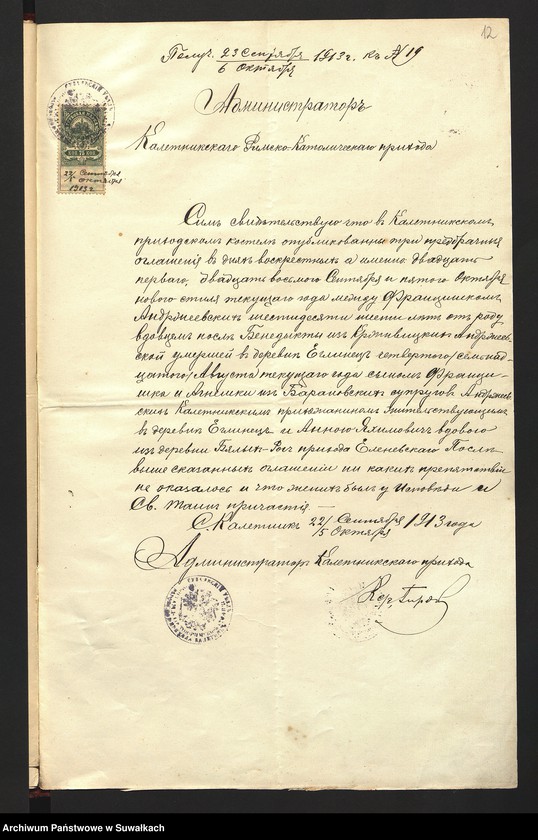 12
Получ. 23 Сентября / 6 Октября 1913 г. къ А/19
Администраторъ
Калетникскаго Римско-Католическаго прихода
22/5 Сентября Октября
1913 г
Симъ свидѣтельствую что въ Калетникскомъ
приходскомъ костелѣ опубликованны три предбрачныя
оглашенія въ дняхъ воскрестныхъ а именно двадцать
перваго, двадцать восьмого Сентября и пятого Октября
нового стиля текущаго года между Францишкомъ
Андржеевскимъ шестидесяти шести лѣтъ отъ роду
вдовцемъ послѣ Бенедыкты изъ Андржеев-
ской умершей въ деревнѣ Еглинецъ четвертого/семнад-
цатого/Августа текущаго года сыномъ Францы-
шка и Агнешки изъ Барановскихъ супруговъ Андржеев-
скихъ Калетникскимъ прихожаниномъ жительствующимъ
въ деревнѣ Еглинецъ и Анною Яхимовичъ вдовою
изъ деревни Бялы-Рог прихода Еленевскаго Послѣ
выше сказанныхъ оглашеній ни какихъ препятствій
не оказалось и что женихъ былъ у Исповѣди и
Св. Таинъ причастія —
С. Калетникъ 22/5 Сентября Октября 1913 года
Администраторъ Калетникскаго прихода
Archiwum Państwowe w Suwałkach